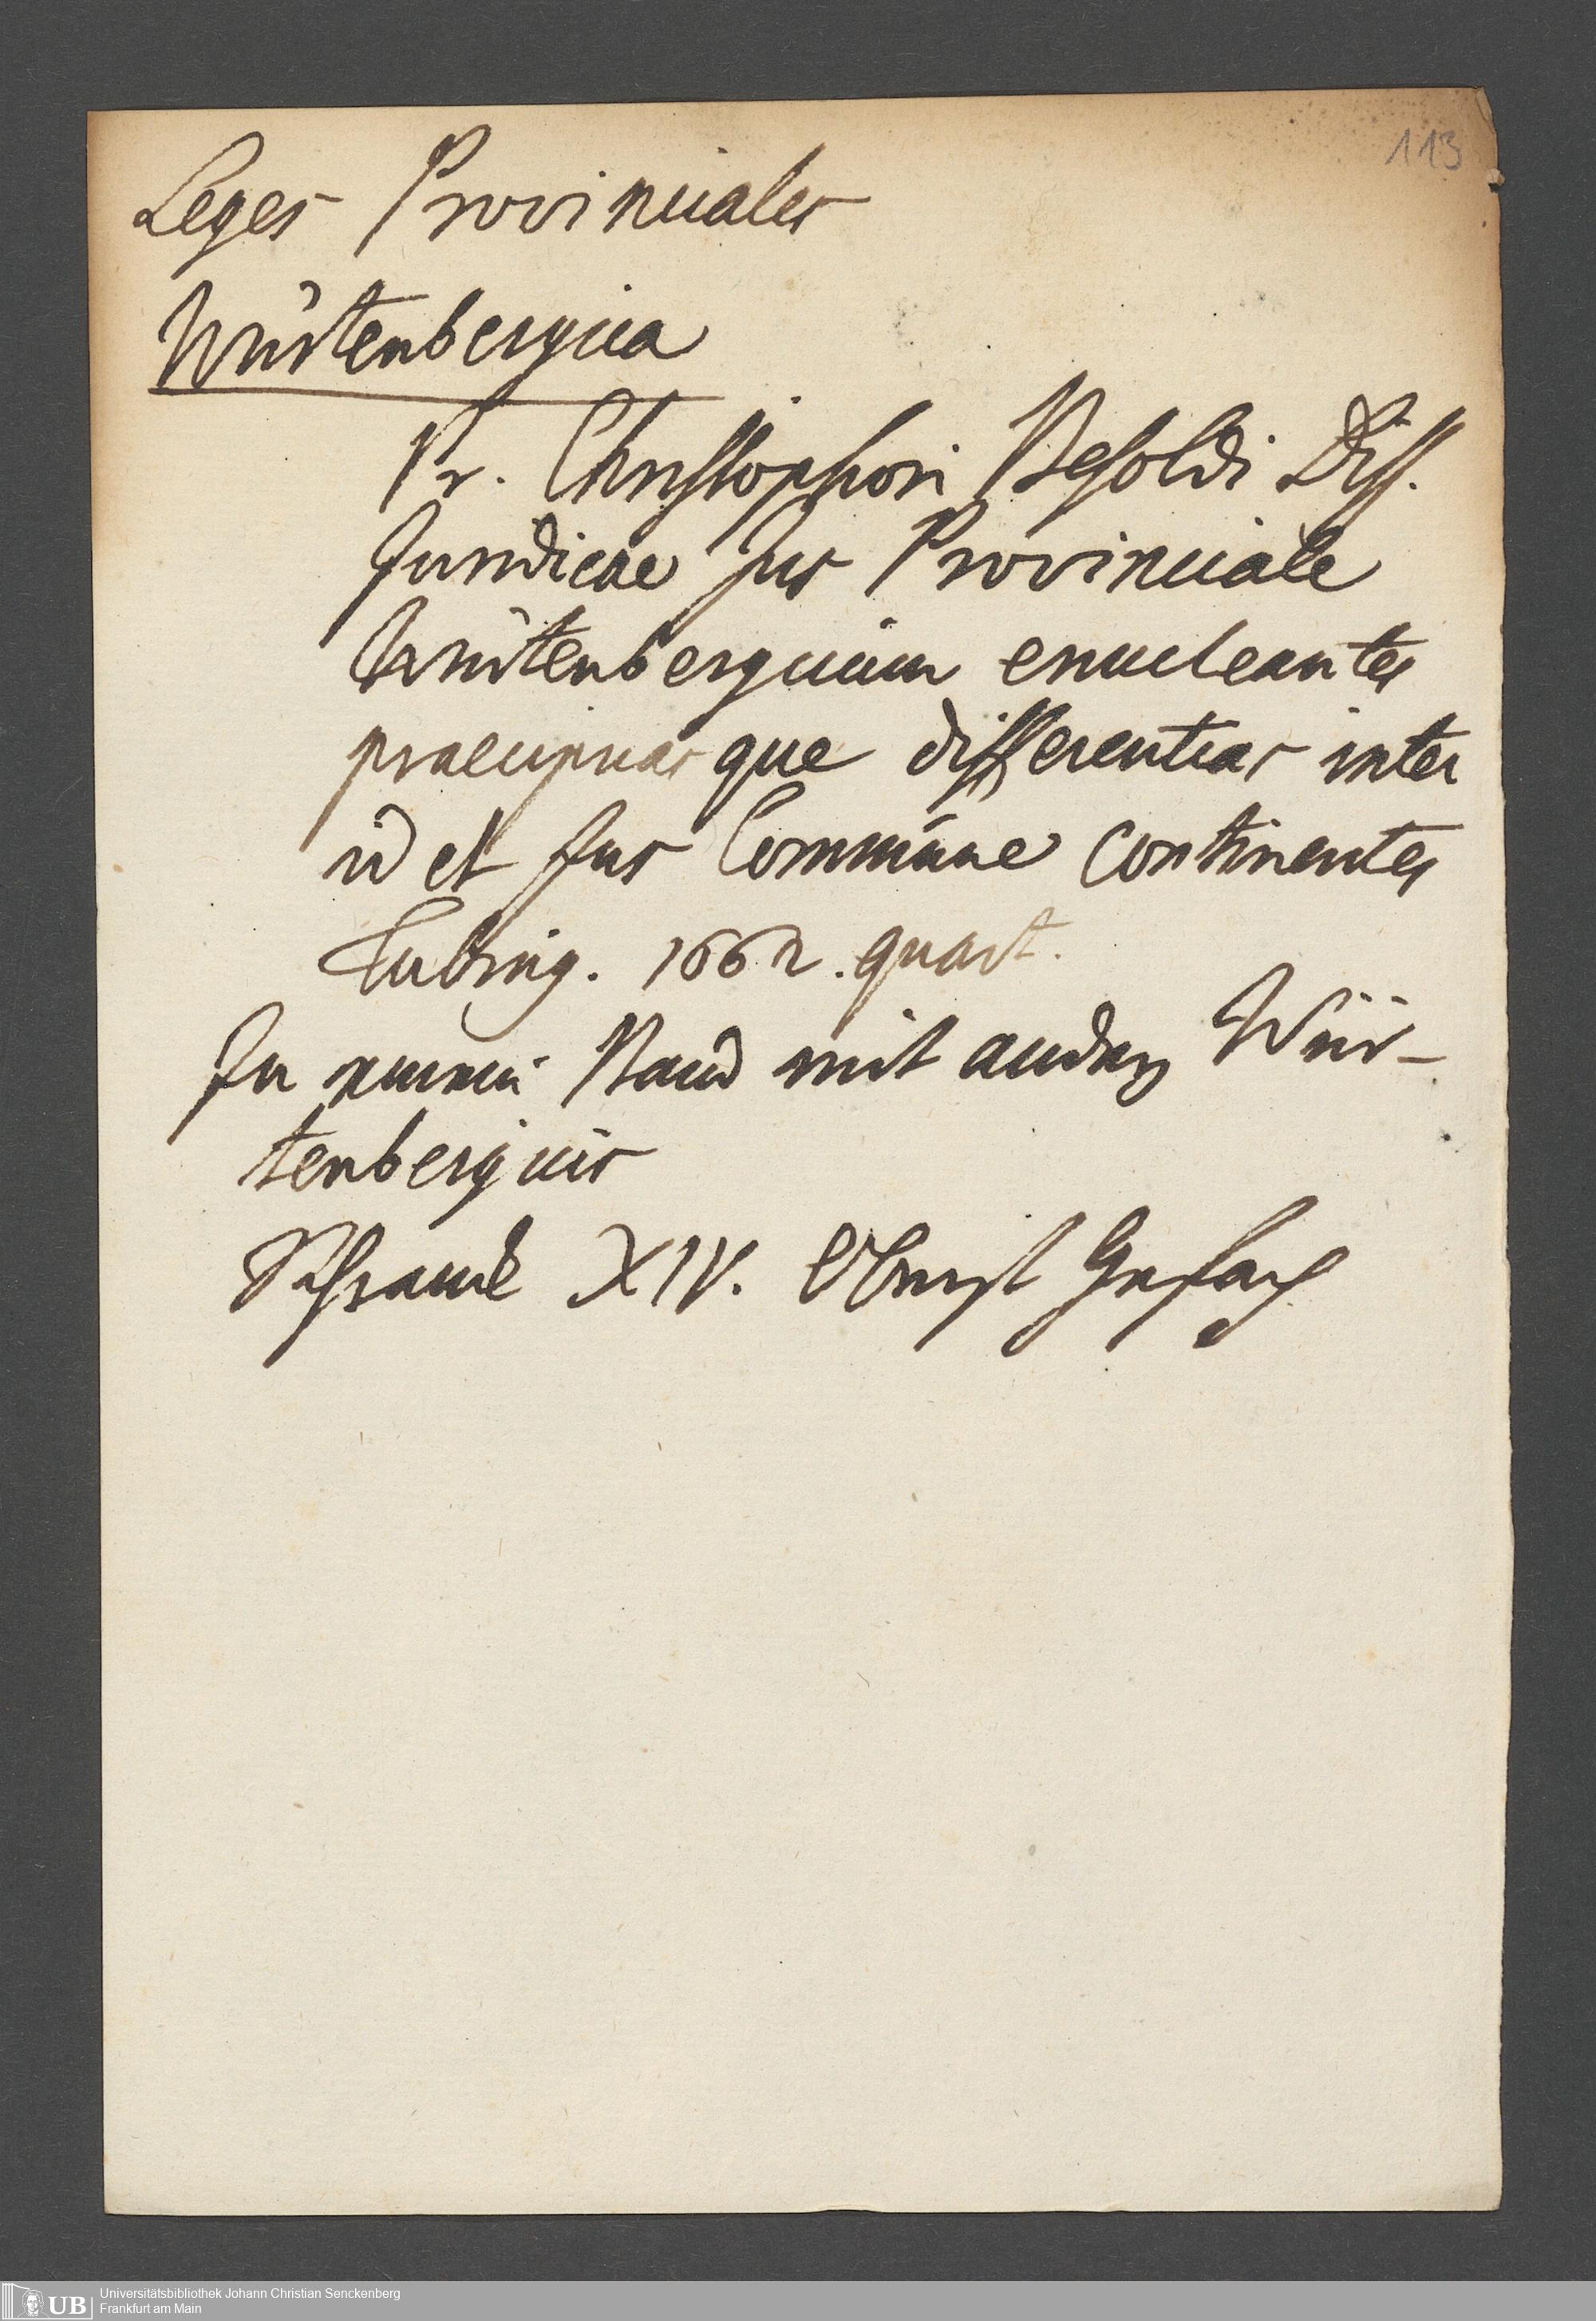 113
Leges Provinciales
Würtenbergica
Pr. Christophori Besoldi Diss.
Juridicae Jus Provinciale
Würtenbergicum enucleantes
praecipuasque differentias inter
id et Jus Commune continentes
Tubing. 1662. quart.
In einem Band mit andern Wür-
tenbergicis
Schranck XIV. Oberst Gefach
UB
Universitätsbibliothek Johann Christian Senckenberg
Frankfurt am Main